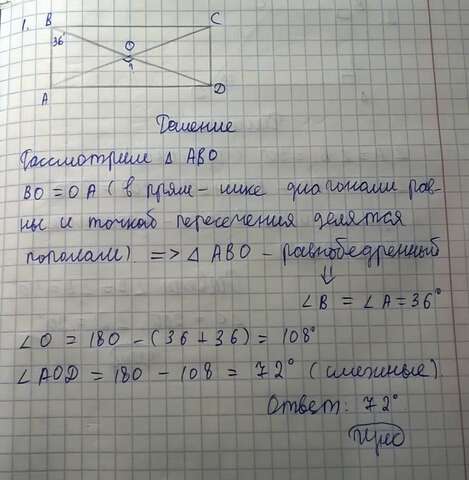 1. B C
36°
O
?
A D
Решение
Рассмотрим △ ABO
BO = OA (в прям-нике диагонали рав-
ны и точкой пересечения делятся
пополам) => △ ABO - равнобедренный
⇓
∠B = ∠A = 36°
∠O = 180 - (36 + 36) = 108°
∠AOD = 180 - 108 = 72° (смежные)
Ответ: 72°